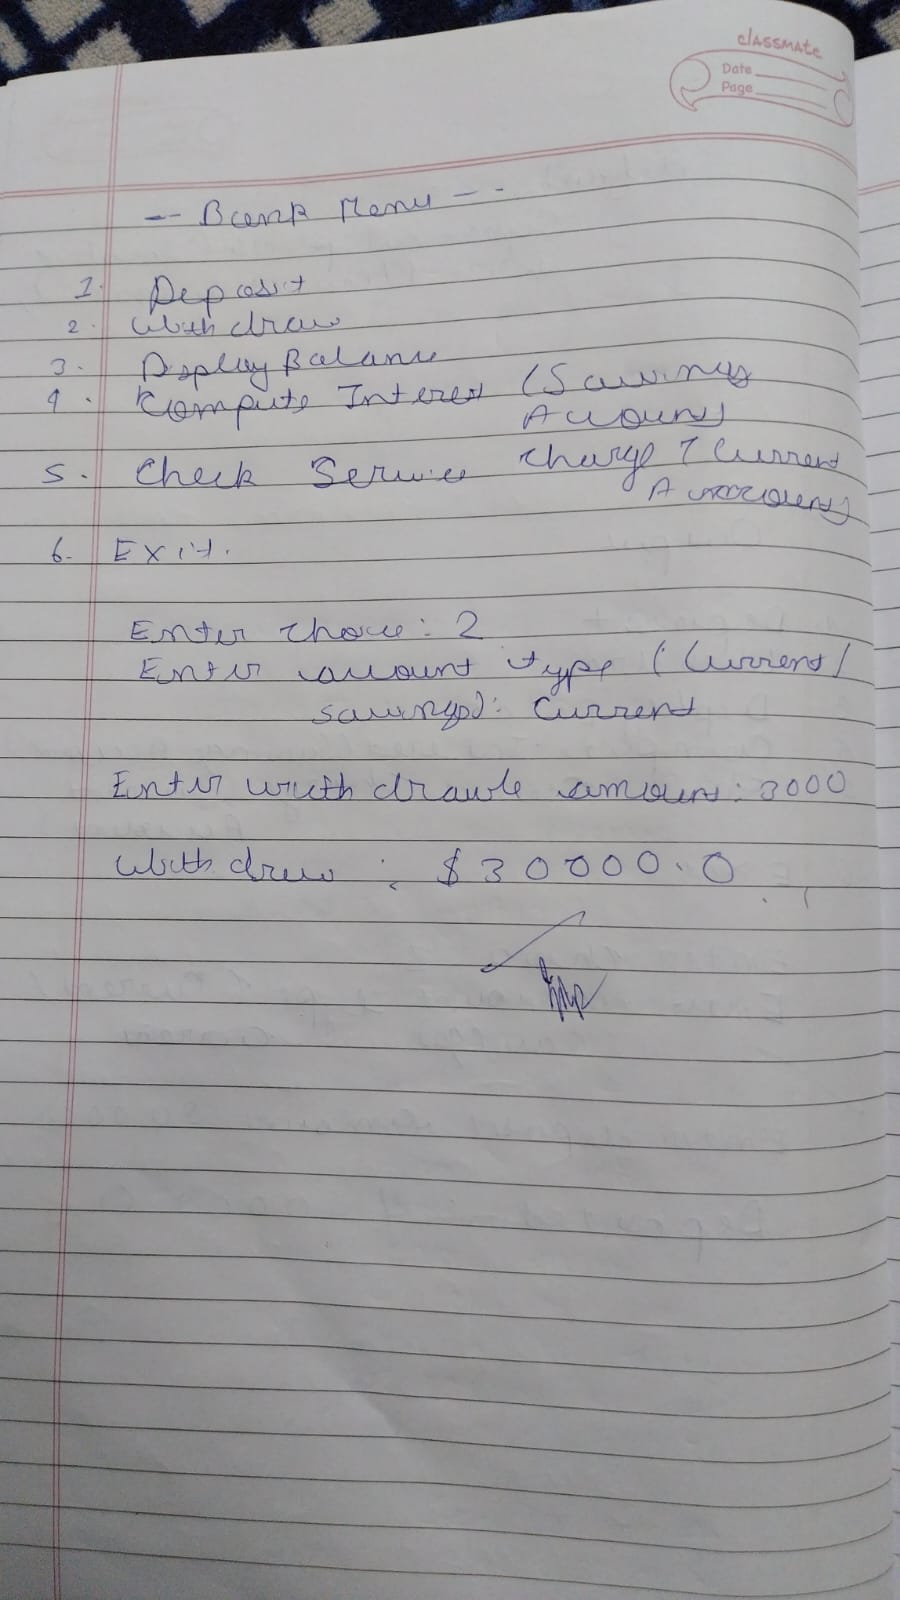 classmate
Date
Page
-- Bank Menu --
1. Deposit
2. Withdraw
3. Display Balance
4. Compute Interest (Savings
Account)
5. Check Service Charge (Current
Account)
6. Exit.
Enter choice: 2
Enter account type (Current/
savings): Current
Enter withdrawle amount: 3000
Withdrew : $30000.0